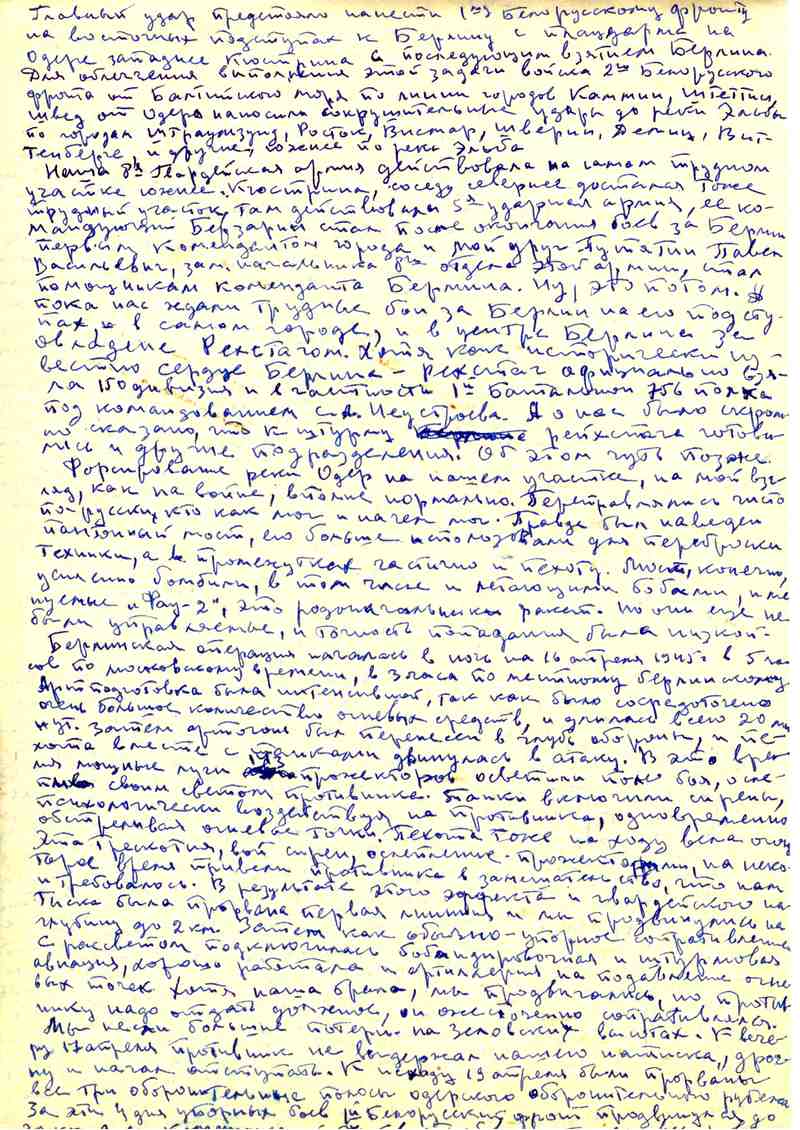 Главный удар предстояло нанести 1му Белорусскому фронту
на восточных подступах к Берлину с плацдарма на
Одере западнее Кюстрина с последующим взятием Берлина.
Для облегчения выполнения этой задачи войска 2го Белорусского
фронта от Балтийского моря по линии городов Каммин, Штеттин,
Швед от Одера наносили сокрушительные удары до реки Эльбы
по городам Штральзунд, Росток, Висмар, Шверин, Демиц, Вит-
тенберге и другие, южнее по река Эльба
Наша 8я Гвардейская армия действовала на самом трудном
участке южнее Кюстрина, соседу севернее достался тоже
трудный участок, там действовала 5я ударная армия, ее ко-
мандующий Берзарин стал после окончания боев за Берлин
первым комендантом города и мой друг Путятин Павел
Васильевич, зам. начальника отдела этой армии, стал
помощникам коменданта Берлина. Ну, это потом. А
пока нас ждали трудные бои за Берлин на его подсту-
пах, и в самом городе, и в центре Берлина за
овладение Рейхстагом. Хотя как исторически из-
вестно сердце Берлина – Рейхстаг официально взя-
ла 150 дивизия и в частности 1й Баталион 756 полка
под командованием с.А. Неустроева. А о нас было скром-
но сказано, что к штурму рейхстага готови-
лись и другие подразделения. Об этом чуть позже.
Форсирование реки Одер на нашем участке, на мой взг-
ляд, как на войне, вполне нормально. Переправлялись чисто
по-русски, кто как мог и на чем мог. Правда был наведен
понтонный мост, его больше использовали для переброски
техники, а в промежутках частично и пехоту. Мост, конечно,
усиленно бомбили, в том числе и летающими бобами, име-
нуемые „Фау-2", это родоначальники ракет. Но они еще не
были управляемые, и точность попадания была низкой.
Берлинская операция началась в ночь на 16 апреля 1945 г в 5 ча-
сов по московскому времени, в 3 часа по местному берлинскому
Артподготовка была интенсивной, так как было сосредоточено
очень большое количество огневых средств, и длилась всего 20 ми-
нут. Затем артогонь был перенесен в глубь обороны, и пе-
хота вместе с танками двинулась в атаку. В это вре-
мя мощные лучи 143 прожекторов осветили поле боя, осле-
пив своим светом противника. Танки включили сирены,
психологически воздействуя на противника, одновременно
обстреливая огневые точки. Пехота тоже на ходу вела огонь
Эта трескотня, вой сирен, ослепление прожекторами, на неко-
торое время привели противника в замешательство, что нам
и требовалось. В результате этого эффекта и гвардейского на-
тиска была прорвана первая линия и мы продвинулись на
глубину до 2 км. Затем как обычно – упорное сопротивление
С рассветом подключилась бомбандировочная и штурмовая
авиация, хорошо работала и артиллерия на подавление огне-
вых точек Хотя наша брала, мы продвигались, но против-
нику надо отдать должное, он ожесточенно сопротивлялся.
Мы несли большие потери на Зеловских высотах. К вече-
ру 17 апреля противник не выдержал нашего натиска, дрог-
нул и начал отступать. К исходу 19 апреля были прорваны
все три оборонительные полосы одерского оборонительного рубежа
За эти 4 дня упорных боев 1й Белорусский фронт продвинулся до